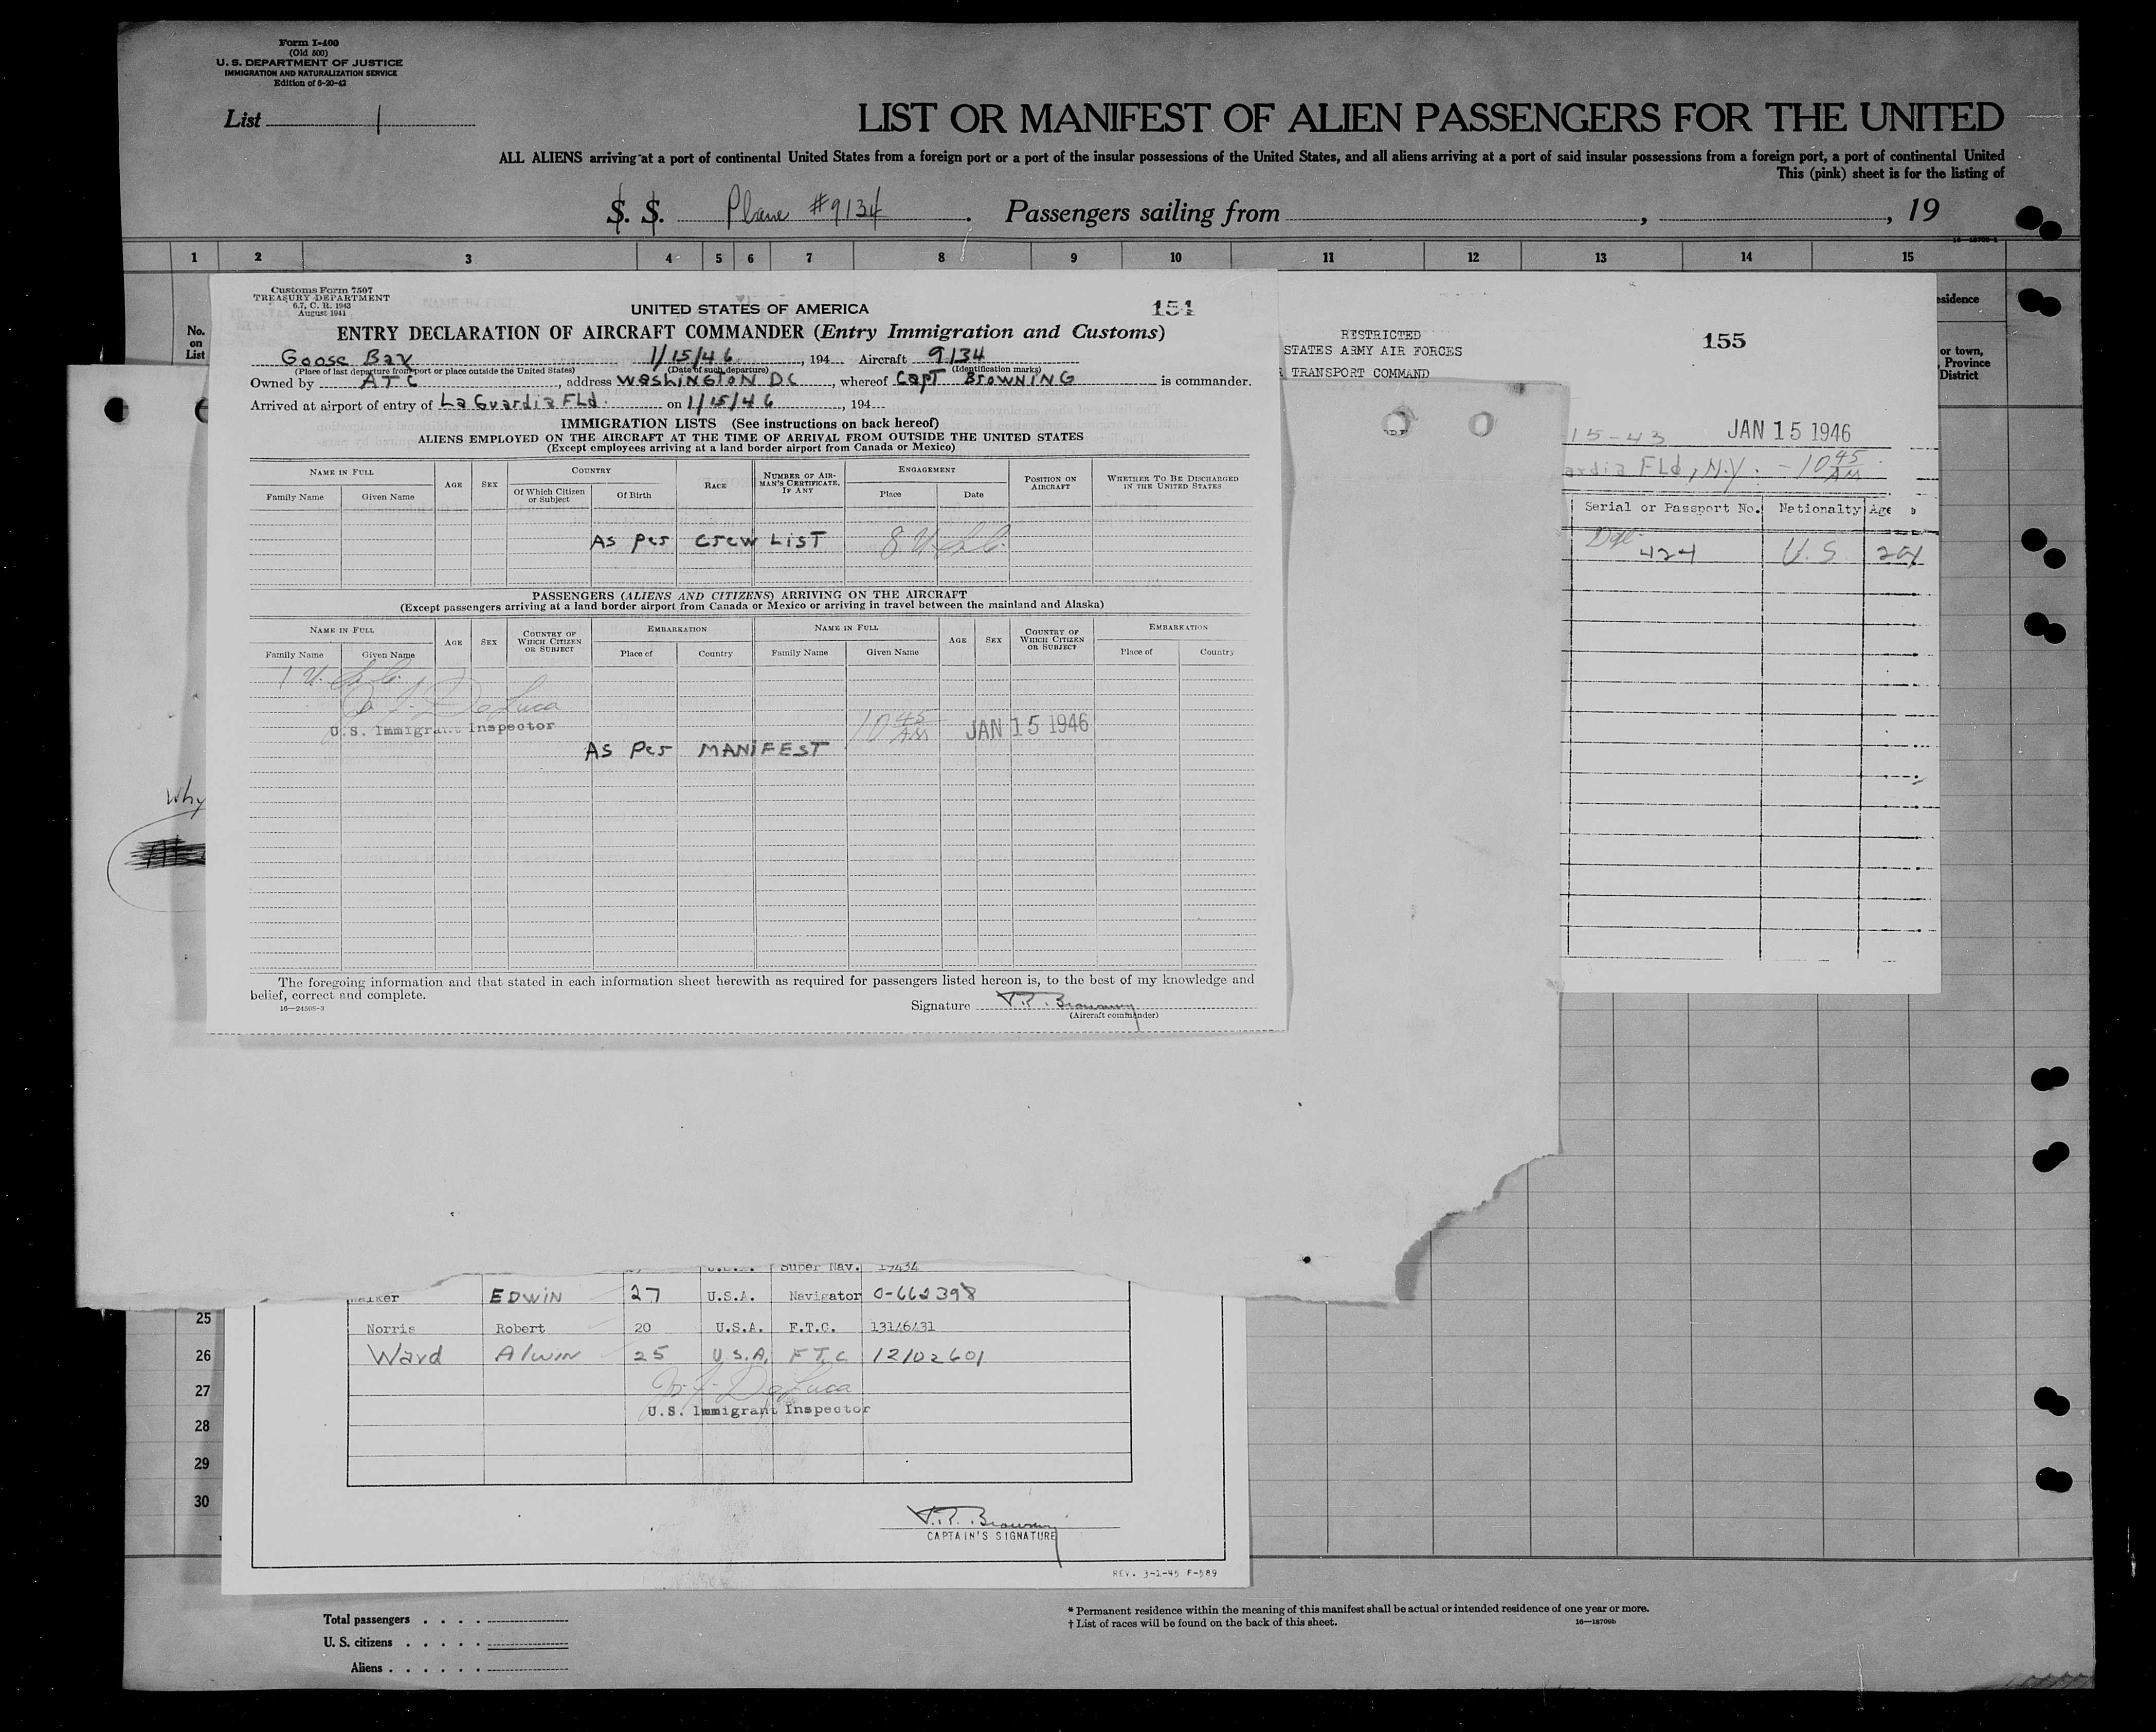 Form I-400
(Old 500)
U. S. DEPARTMENT OF JUSTICE
IMMIGRATION AND NATURALIZATION SERVICE
Edition of 6-20-42
List 1
LIST OR MANIFEST OF ALIEN PASSENGERS FOR THE UNITED
ALL ALIENS arriving at a port of continental United States from a foreign port or a port of the insular possessions of the United States, and all aliens arriving at a port of said insular possessions from a foreign port, a port of continental United
This (pink) sheet is for the listing of
S. S. Plane #9134. Passengers sailing from , , 19
1 2 3 4 5 6 7 8 9 10 11 12 13 14 15
No. on List
esidence
or town, Province District
Customs Form 7507
TREASURY DEPARTMENT
6.7, C. R. 1943
August 1941
UNITED STATES OF AMERICA
154
ENTRY DECLARATION OF AIRCRAFT COMMANDER (Entry Immigration and Customs)
Goose Bay 1/15/46, 194 Aircraft 9134
(Place of last departure from port or place outside the United States) (Date of such departure) (Identification marks)
Owned by ATC, address Washington DC, whereof Capt Browning is commander.
Arrived at airport of entry of La Guardia FLd. on 1/15/46, 194
IMMIGRATION LISTS (See instructions on back hereof)
ALIENS EMPLOYED ON THE AIRCRAFT AT THE TIME OF ARRIVAL FROM OUTSIDE THE UNITED STATES
(Except employees arriving at a land border airport from Canada or Mexico)
NAME IN FULL AGE SEX COUNTRY RACE NUMBER OF AIRMAN'S CERTIFICATE, IF ANY ENGAGEMENT POSITION ON AIRCRAFT WHETHER TO BE DISCHARGED IN THE UNITED STATES
Family Name Given Name Of Which Citizen or Subject Of Birth Place Date
As Per Crew List 8 U.S.C.
PASSENGERS (ALIENS AND CITIZENS) ARRIVING ON THE AIRCRAFT
(Except passengers arriving at a land border airport from Canada or Mexico or arriving in travel between the mainland and Alaska)
NAME IN FULL AGE SEX COUNTRY OF WHICH CITIZEN OR SUBJECT EMBARKATION NAME IN FULL AGE SEX COUNTRY OF WHICH CITIZEN OR SUBJECT EMBARKATION
Family Name Given Name Place of Country Family Name Given Name Place of Country
1 U.S.C.
DeLuca
U.S. Immigrant Inspector
10 45 AM JAN 15 1946
As Per MANIFEST
The foregoing information and that stated in each information sheet herewith as required for passengers listed hereon is, to the best of my knowledge and
belief, correct and complete.
16—24508-3
Signature Browning
(Aircraft commander)
RESTRICTED
STATES ARMY AIR FORCES
TRANSPORT COMMAND
155
15-43 JAN 15 1946
ardia FLd, N.Y. - 10 45 AM
Serial or Passport No. Nationalty Age
424 U.S.
Why
Super Nav.
EDWIN 27 U.S.A. Navigator O-662398
Norris Robert 20 U.S.A. F.T.C. 13146431
Ward Alwin 25 U.S.A. F.T.C 12102601
DeLuca
U.S. Immigrant Inspector
25
26
27
28
29
30
Browning
CAPTAIN'S SIGNATURE
REV. 3-1-45 F-589
Total passengers
U. S. citizens
Aliens
* Permanent residence within the meaning of this manifest shall be actual or intended residence of one year or more.
† List of races will be found on the back of this sheet.
16—18709b